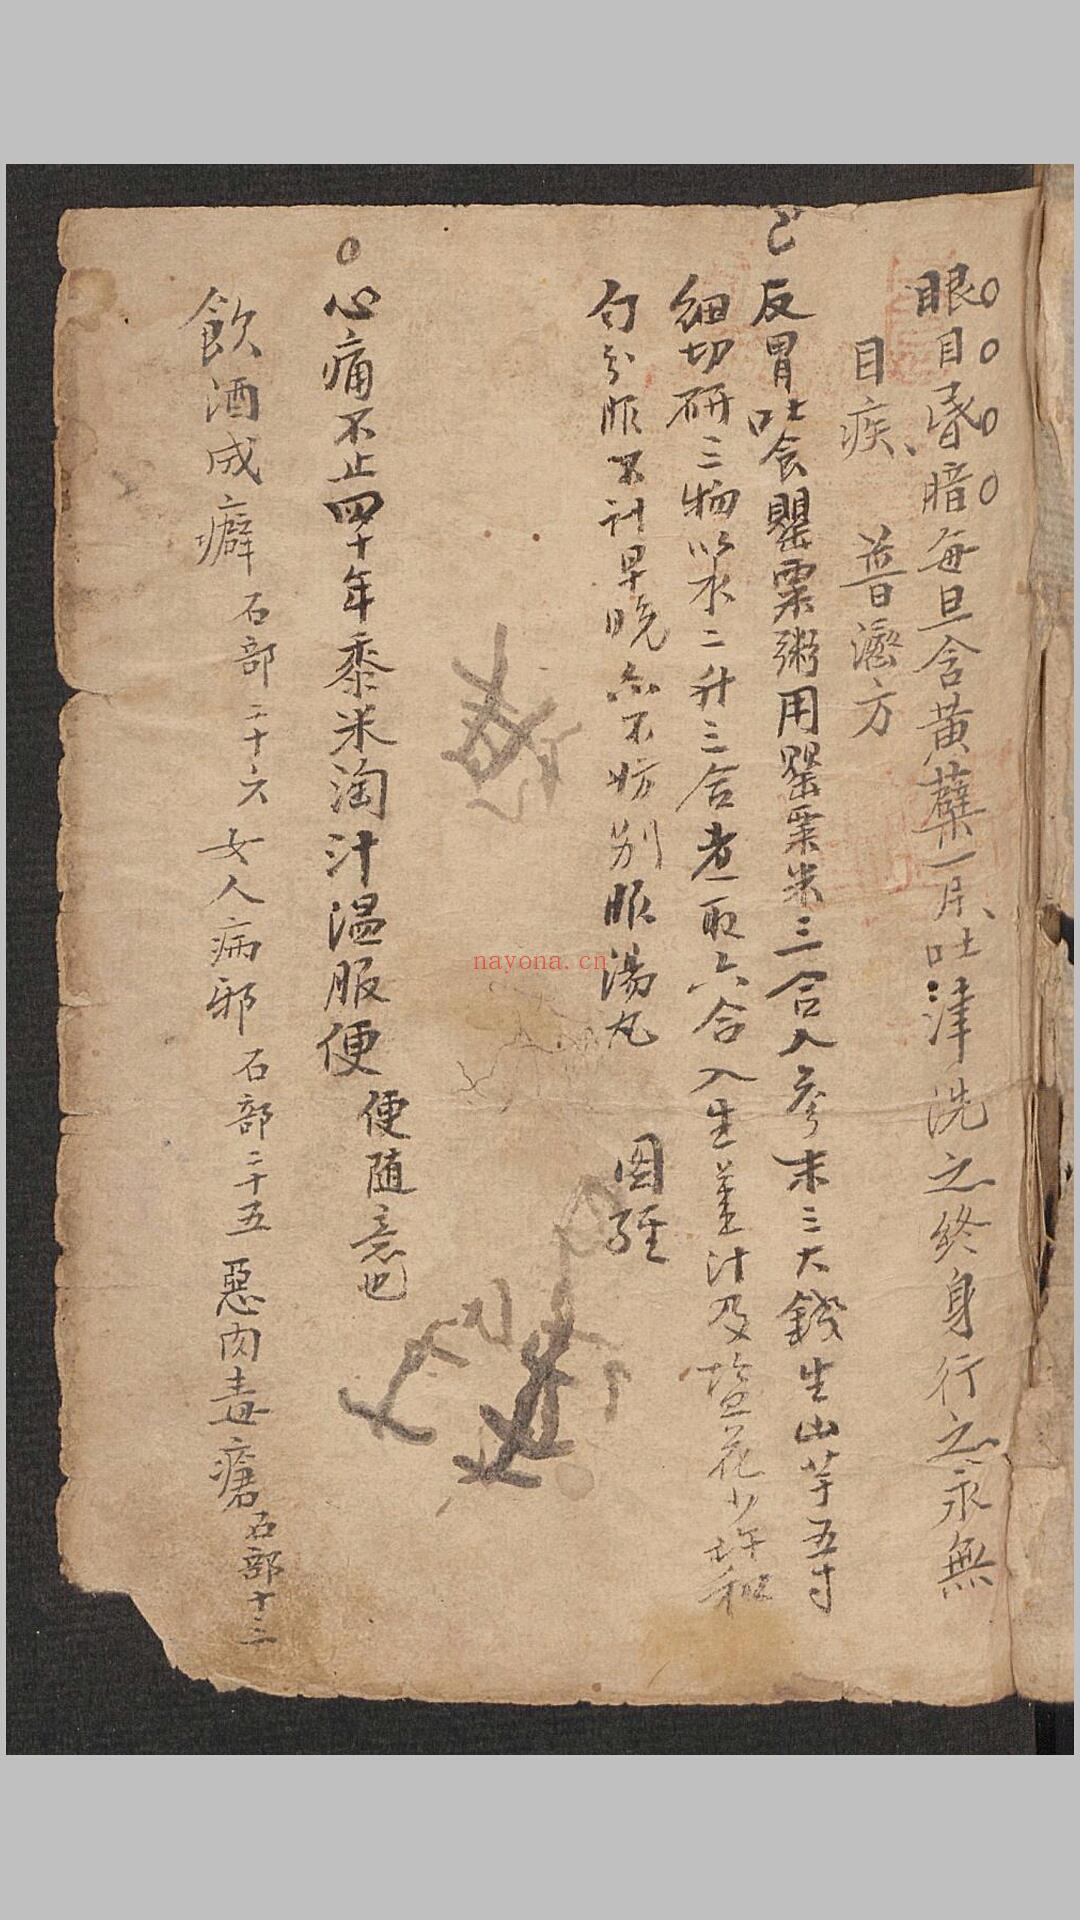 眼目昏暗每旦含黃蘗一片吐津洗之終身行之永無
目疾 普濟方
反胃吐食罌粟粥用罌粟米三合人參末三大錢生山芋五寸
細切研三物以水二升三合煮取六合入生薑汁及塩花少許和
勻分服不計早晚亦不妨別服湯丸 圖經
心痛不止四十年黍米淘汁温服便
便隨意也
飲酒成癖 石部二十六 女人病邪 石部二十五 惡肉毒瘡 石部十二
nayona.cn